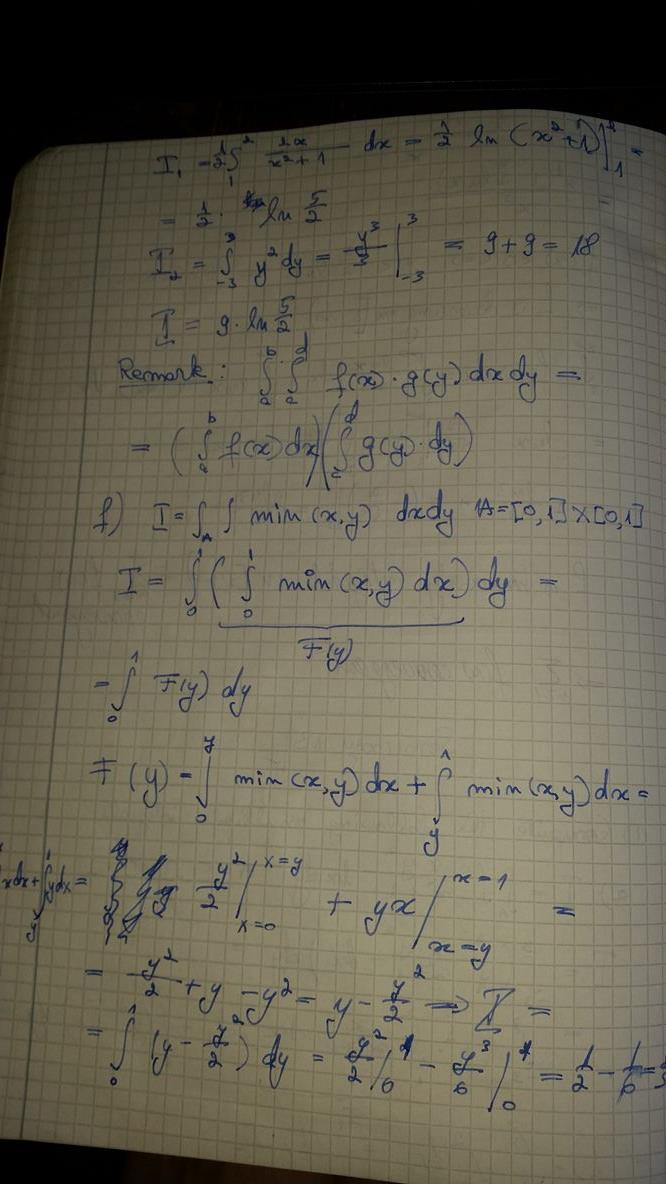 I₁ = 1/2 ∫₁² 2x/(x²+1) dx = 1/2 ln (x²+1)|₁² =
= 1/2 · ln 5/2
I₂ = ∫₋₃³ y² dy = y³/3 |₋₃³ = 9+9 = 18
I = 9 · ln 5/2
Remark: ∫ₐᵇ ∫_c^d f(x) · g(y) dx dy =
= (∫ₐᵇ f(x) dx)(∫_c^d g(y) · dy)
f) I = ∫_A ∫ min (x,y) dxdy A = [0,1] X [0,1]
I = ∫₀¹ ( ∫₀¹ min (x,y) dx) dy =
F(y)
= ∫₀¹ F(y) dy
F (y) = ∫₀^y min (x,y) dx + ∫_y^1 min (x,y) dx =
x dx + ∫_y^1 y dx = y²/2 |_{x=0}^{x=y} + yx |_{x=y}^{x=1} =
= y²/2 + y - y² = y - y²/2 ⇒ I =
= ∫₀¹ (y - y²/2) dy = y²/2 |₀¹ - y³/6 |₀¹ = 1/2 - 1/6 = 1/3